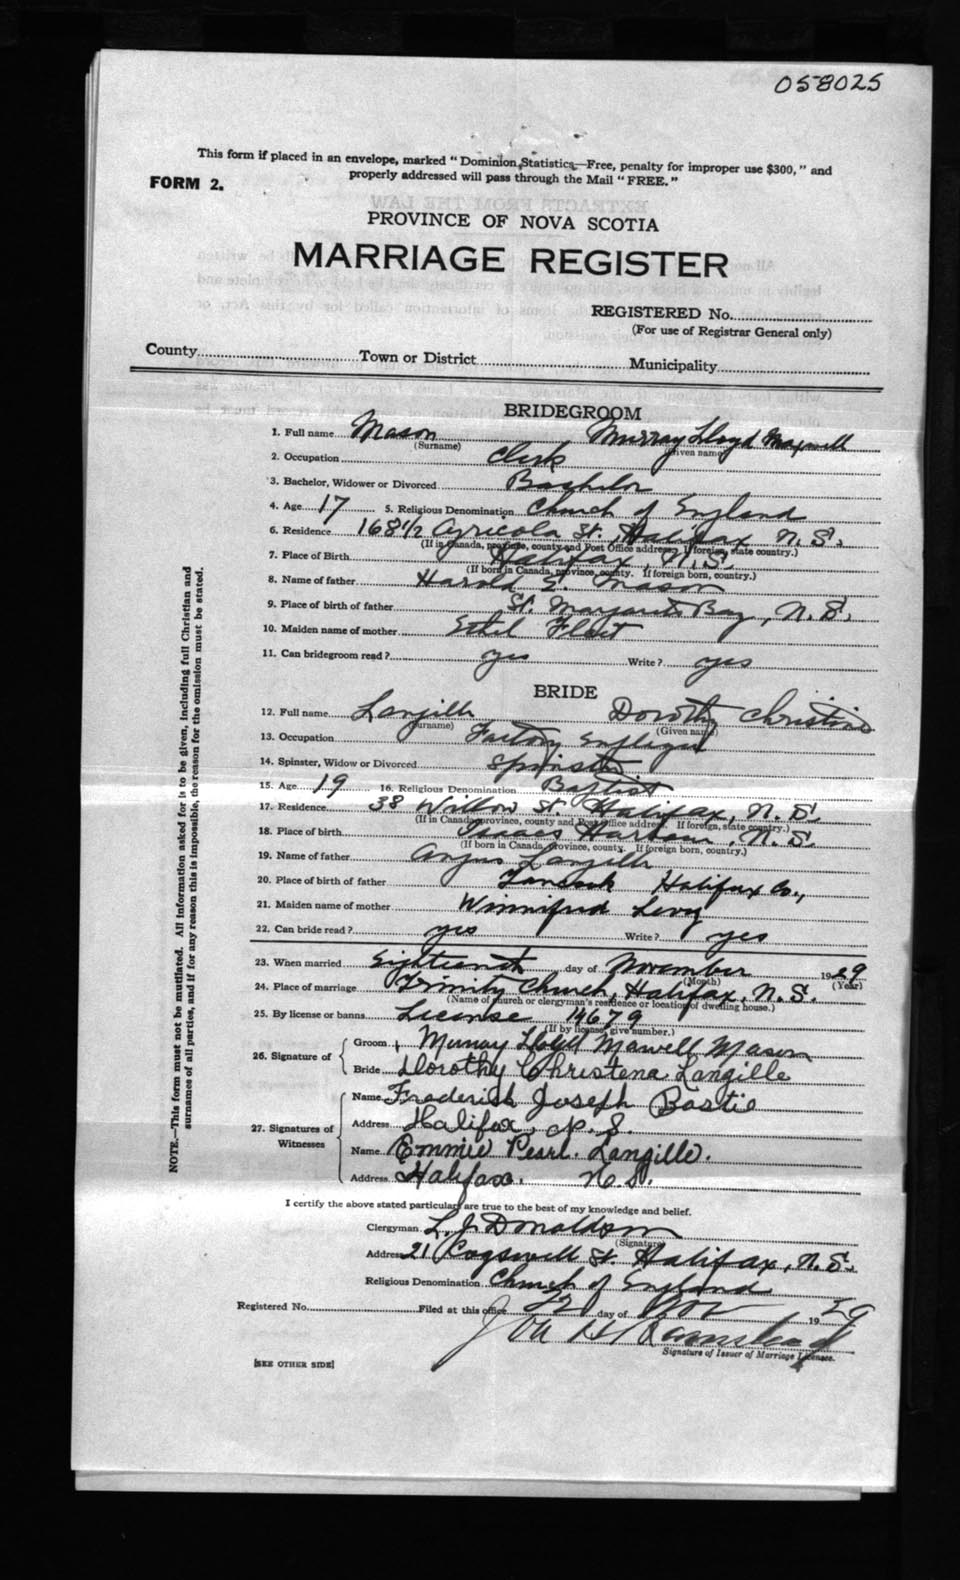 058025
This form if placed in an envelope, marked "Dominion Statistics—Free, penalty for improper use $300," and
FORM 2.
properly addressed will pass through the Mail "FREE."
PROVINCE OF NOVA SCOTIA
MARRIAGE REGISTER
REGISTERED No.
(For use of Registrar General only)
County Town or District Municipality
BRIDEGROOM
1. Full name Mason Murray Lloyd Maxwell
(Surname) (Given name)
2. Occupation Clerk
3. Bachelor, Widower or Divorced Bachelor
4. Age 17 5. Religious Denomination Church of England
6. Residence 168 1/2 Agricola St. Halifax N.S.
(If in Canada, province, county and Post Office address. If foreign, state country.)
7. Place of Birth Halifax, N.S.
(If born in Canada, province, county. If foreign born, country.)
8. Name of father Harold E. Mason
9. Place of birth of father St. Margarets Bay, N.S.
10. Maiden name of mother Ethel Fleet
11. Can bridegroom read? yes Write? yes
BRIDE
12. Full name Langille Dorothy Christina
(Surname) (Given name)
13. Occupation Factory Employee
14. Spinster, Widow or Divorced Spinster
15. Age 19 16. Religious Denomination Baptist
17. Residence 38 Willow St. Halifax, N.S.
(If in Canada, province, county and Post Office address. If foreign, state country.)
18. Place of birth Isaacs Harbour, N.S.
(If born in Canada, province, county. If foreign born, country.)
19. Name of father Angus Langille
20. Place of birth of father Tancook Halifax Co.,
21. Maiden name of mother Winnifred Levy
22. Can bride read? yes Write? yes
23. When married Eighteenth day of November 1929
(Month) (Year)
24. Place of marriage Trinity Church, Halifax, N.S.
(Name of church or clergyman's residence or location of dwelling house.)
25. By license or banns License 14679
(If by license, give number.)
26. Signature of Groom Murray Lloyd Maxwell Mason
Bride Dorothy Christena Langille
27. Signatures of Witnesses Name Frederick Joseph Bastie
Address Halifax, N.S.
Name Emmie Pearl. Langille.
Address Halifax. N.S.
I certify the above stated particulars are true to the best of my knowledge and belief.
Clergyman L. J. Donaldson
(Signature)
Address 21 Cogswell St. Halifax, N.S.
Religious Denomination Church of England
Registered No. Filed at this office 22 day of Nov 1929
Signature of Issuer of Marriage Licenses.
[SEE OTHER SIDE]
NOTE.—This form must not be mutilated. All information asked for is to be given, including full Christian and
surnames of all parties, and if for any reason this is impossible, the reason for the omission must be stated.